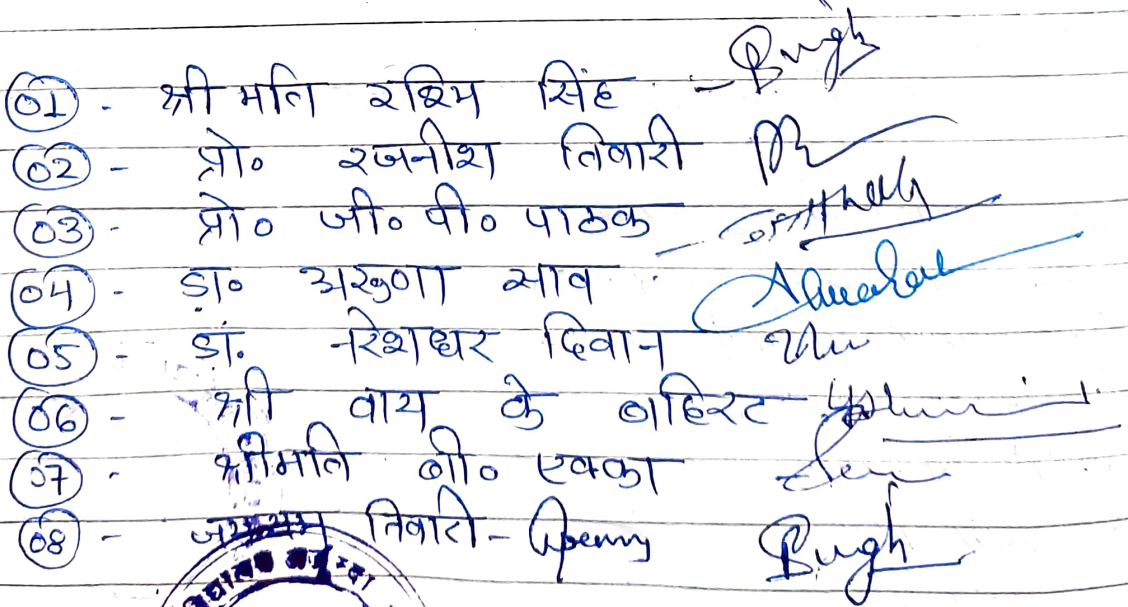 01 - श्रीमति रश्मि सिंह - Bugh
02 - प्रो० रजनीश तिवारी
03 - प्रो० जी० पी० पाठक
04 - डा० अरुणा साव
05 - डां. नरेशधर दिवान
06 - श्री वाय के बाहिरट
07 - श्रीमति बी० एक्का
08 - तिवारी - Bugh